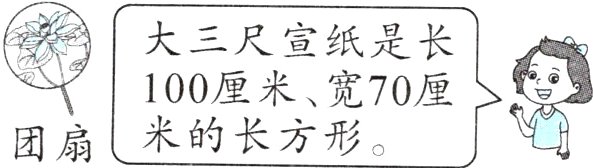 大三尺宣纸是长
100厘米、宽70厘
米的长方形。
团扇